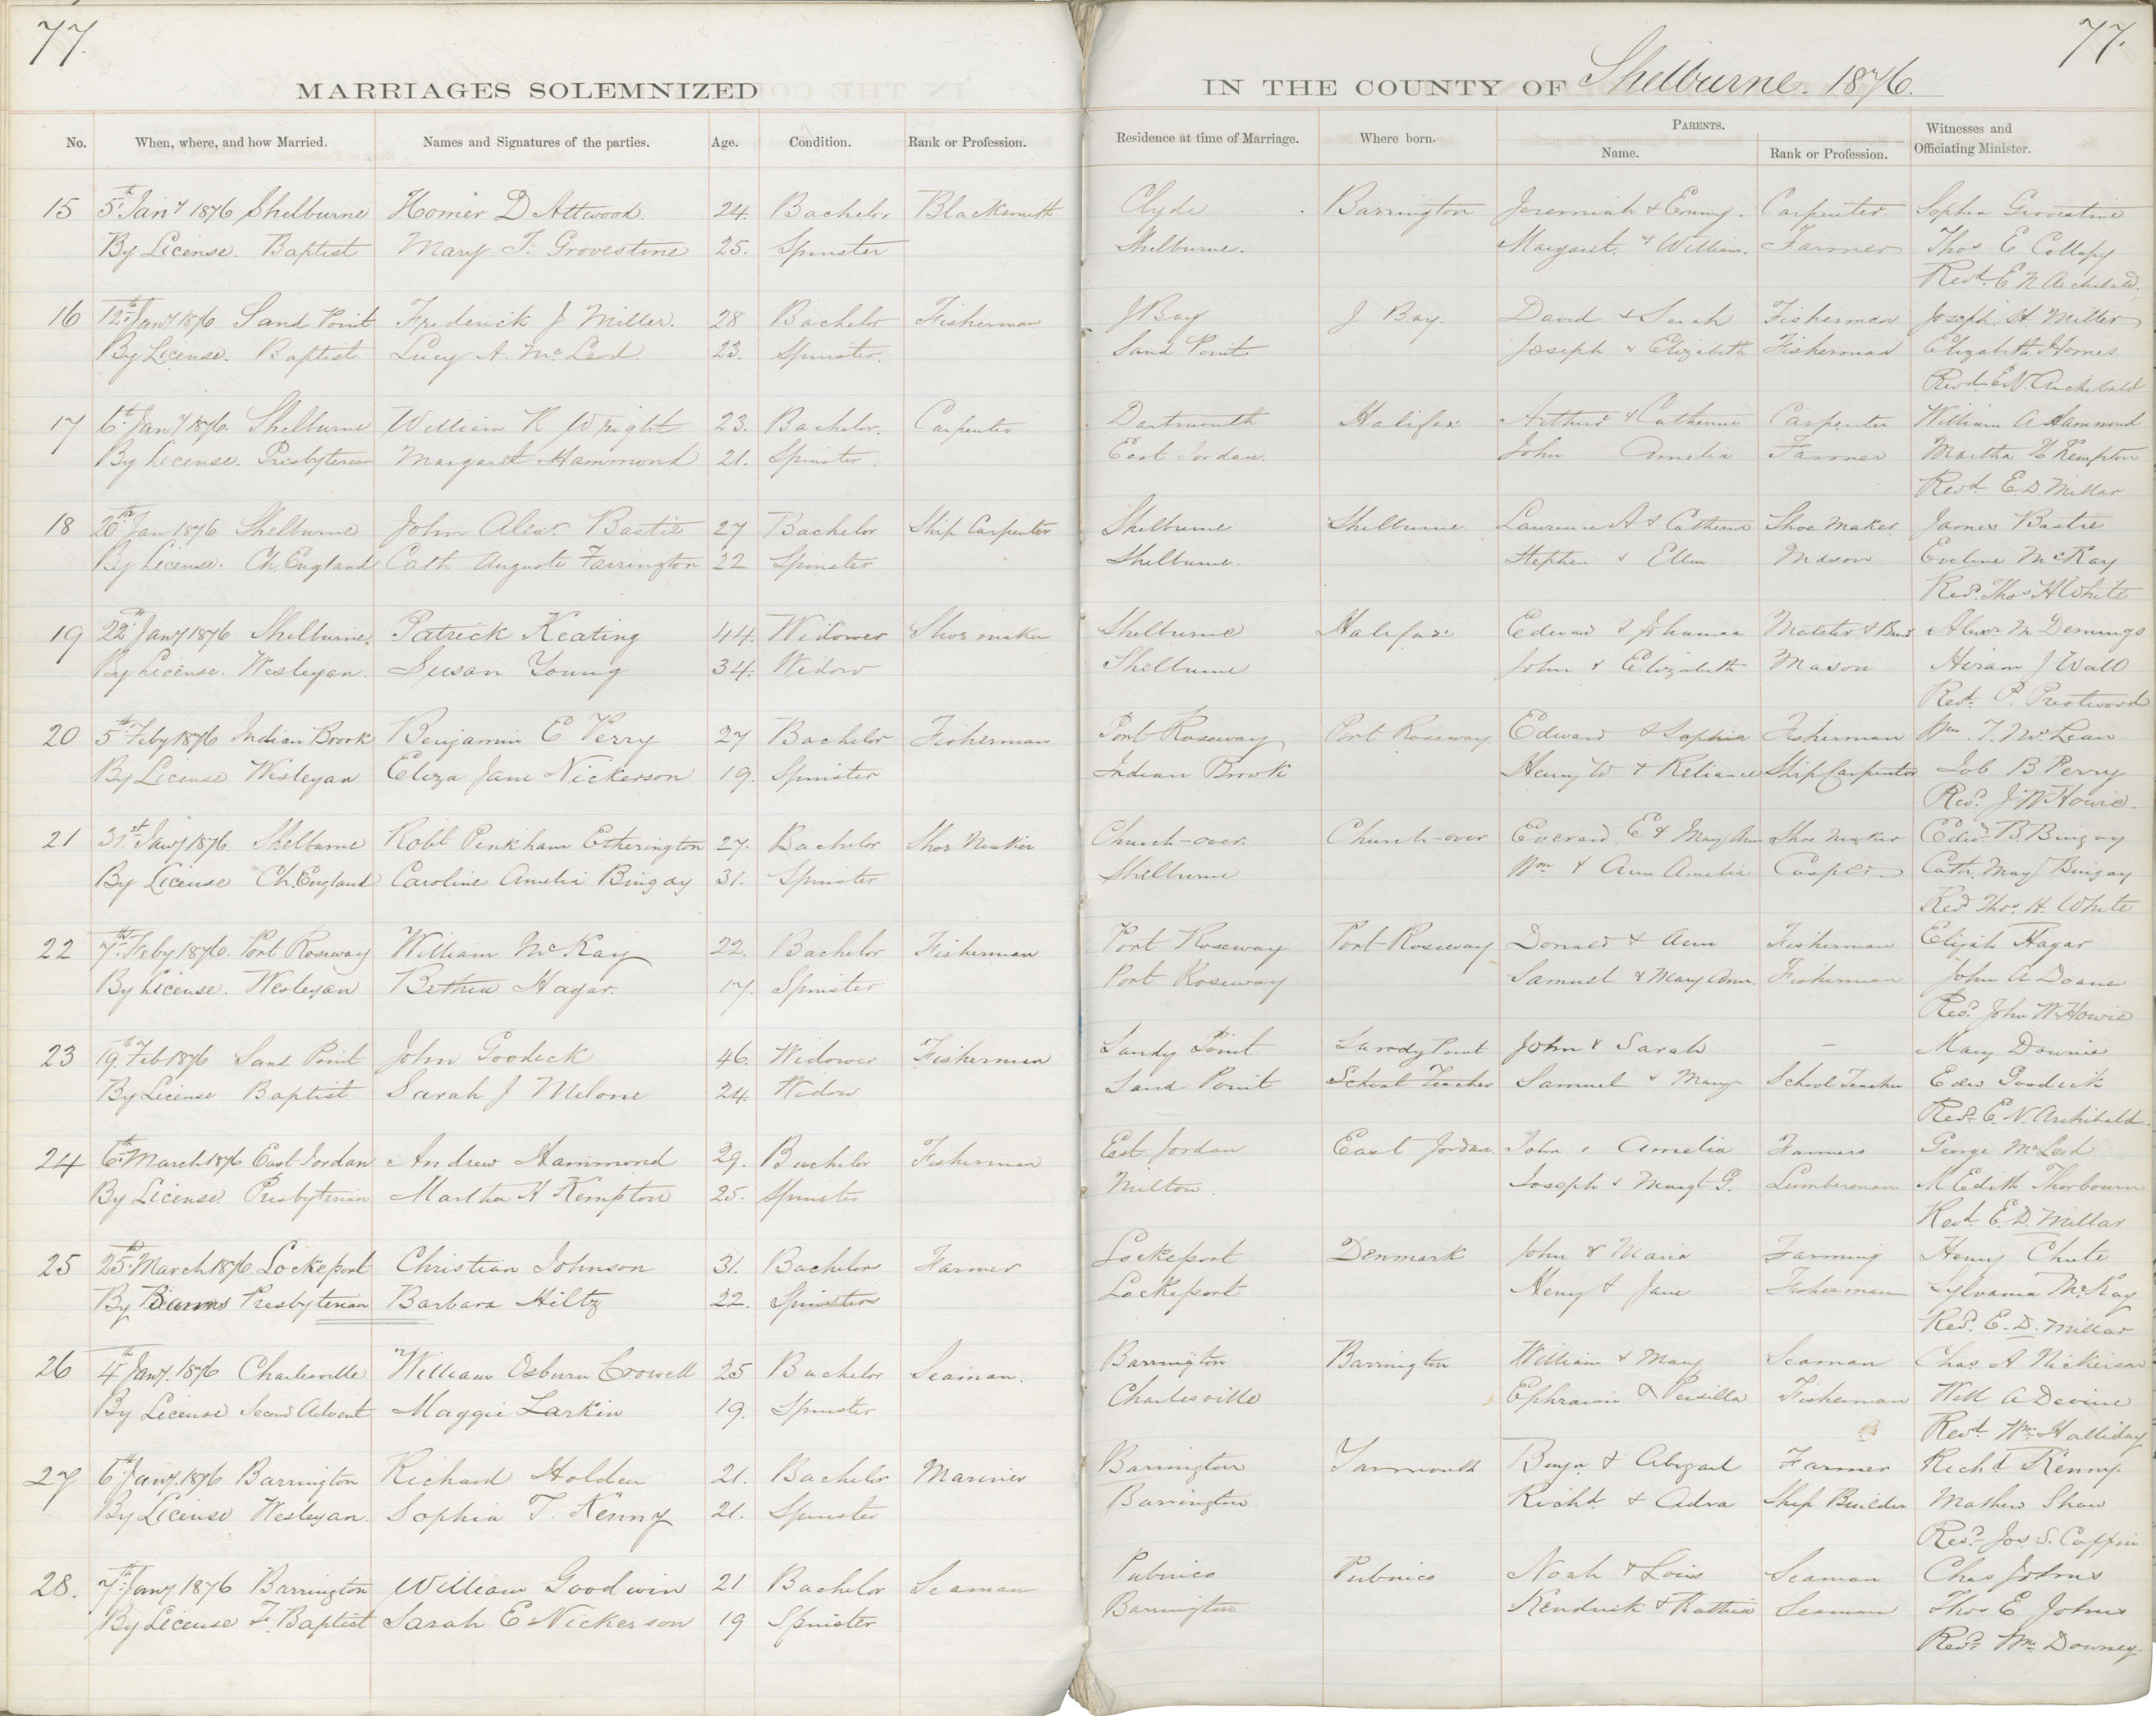 77.
MARRIAGES SOLEMNIZED
No. When, where, and how Married. Names and Signatures of the parties. Age. Condition. Rank or Profession.
15 5th Jany 1876 Shelburne Homer D Attwood. 24. Bachelor Blacksmith
By License. Baptist Mary T. Grovestine 25. Spinster
16 12th Jany 1876 Sand Point Frederick J Miller. 28 Bachelor Fisherman
By License. Baptist Lucy A. McLeod 23. Spinster.
17 6th Jany 1876. Shelburne William R Wright 23. Bachelor. Carpenter
By License. Presbyterian Margaret Hammond 21. Spinster.
18 20th Jan 1876 Shelburne John Alexr. Bastie 27 Bachelor Ship Carpenter
By License. Ch. England Cath Auguste Farrington 22 Spinster
19 22d Jany 1876 Shelburne. Patrick Keating 44. Widower Shoe maker
By License. Wesleyan. Susan Young 34. Widow
20 5th Feby 1876 Indian Brook Benjamin E Perry 27 Bachelor Fisherman
By License Wesleyan Eliza Jane Nickerson 19. Spinster
21 31st Jany 1876. Shelburne Robt Pinkham Etherington 27. Bachelor Shoe Maker
By License Ch. England Caroline Amelia Bingay 31. Spinster
22 7th Feby 1876. Port Roseway William McKay 22. Bachelor Fisherman
By License. Wesleyan Bethia Hagar. 17. Spinster
23 19th Feb 1876 Sand Point John Goodick 46. Widower Fisherman
By License Baptist Sarah J Melone 24. Widow
24 6th March 1876 East Jordan Andrew Hammond 29. Bachelor Fisherman
By License. Presbyterian Martha H Kempton 25. Spinster
25 25th March 1876. Lockeport Christian Johnson 31. Bachelor Farmer
By Banns Presbyterian Barbara Hiltz 22. Spinster
26 4th Jany. 1876 Charlesville William Osburn Crowell 25 Bachelor Seaman.
By License Second Advent Maggie Larkin 19. Spinster
27 6th Jany. 1876 Barrington Richard Holden 21. Bachelor Mariner
By License Wesleyan. Sophia T. Kenny 21. Spinster
28. 7th Jany 1876 Barrington William Goodwin 21 Bachelor Seaman
By License F. Baptist Sarah E Nickerson 19 Spinster
77.
IN THE COUNTY OF Shelburne. 1876.
Residence at time of Marriage. Where born. PARENTS. Name. Rank or Profession. Witnesses and Officiating Minister.
Clyde Barrington Jeremiah & Emmy. Carpenter Sophia Grovestine
Shelburne. Margaret & William. Farmer Thos E Collupy
Revd. E N Archibald.
J Bay J Bay. David & Sarah Fisherman Joseph H. Miller
Sand Point Joseph & Elizabeth Fisherman Elizabeth Homes
Revd E N. Archibald
Dartmouth Halifax Arthur & Catherine Carpenter William A Hammond
East Jordan. John Amelia Farmer Martha H Kempton
Revd. E. D. Millar
Shelburne Shelburne. Laurence A & Catherine Shoe Maker James Bastie
Shelburne. Stephen & Ellen Mason Eveline McKay
Revd. Thos H White
Shelburne Halifax Edward & Johanna Alexr M Demings
Shelburne John & Elizabeth Mason Hiram J Wall
Revd. P. Prestwood
Port Roseway Port Roseway Edward & Sophia Fisherman Wm. T. McLean
Indian Brook Henry W & Reliance Ship Carpenter Job B Perry
Revd. J W Howie.
Church-over. Church-over Everard E & Mary Ann Shoe Maker Edwd. B Bingay
Shelburne Wm & Ann Amelia Cooper Cath. May Bingay
Revd Thos. H. White
Port Roseway Port-Roseway Donald & Ann Fisherman Elijah Hagar
Port Roseway Samuel & Mary Ann. Fisherman John A Doane
Revd. John W Howie
Sandy Point Sandy Point John & Sarah – Mary Downie
Sand Point School Teacher Samuel & Mary School Teacher Edw Goodick
Revd. E. N. Archibald.
East Jordan East Jordan. John & Amelia Farmers George McLeod
Milton. Joseph & Margt G. Lumberman M Edith Thorbourn
Revd. E. D. Millar
Lockeport Denmark John & Maria Farming Henry Chute
Lockeport Henry & Jane Fisherman Sylvania McKay
Revd. E. D. Millar
Barrington Barrington William & Mary Seaman Chas A Nickerson
Charlesville Ephraim & Fisherman Will A Devine
Revd. Wm. Halliday
Barrington Yarmouth Benjn & Abigail Farmer Richd. Kenny.
Barrington Richd. & Adra Ship Builder Mathew Shaw
Revd. Jos. S. Coffin
Pubnico Pubnico Noah & Lois Seaman Chas Johns
Barrington Kendrick & Seaman Thos E Johns
Revd. Wm. Downey.